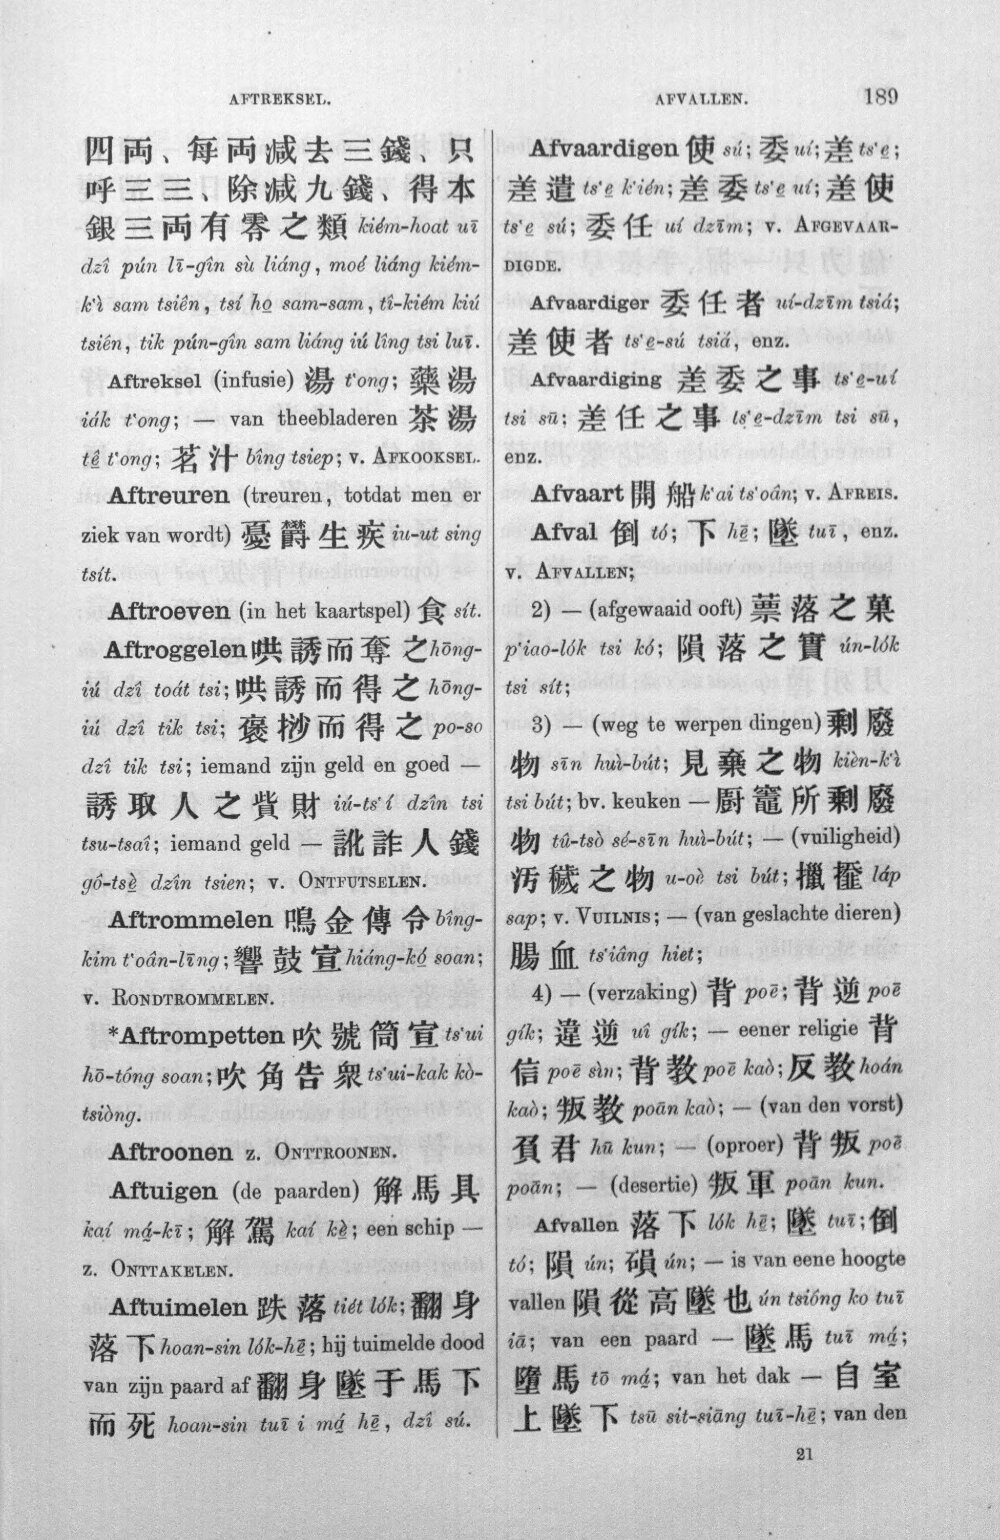 AFTREKSEL.
AFVALLEN.
189
四両、每両減去三錢、只
呼三三、除減九錢、得本
銀三両有零之類 kiém-hoat uī
dzî pún lī-gîn sù liáng, moé liáng kiém-
k'ì sam tsiên, tsí ho̤ sam-sam, tî-kiém kiú
tsiên, tik pún-gîn sam liáng iú lîng tsi luī.
Aftreksel (infusie) 湯 t'ong; 藥湯
iák t'ong; — van theebladeren 茶湯
tê̤ t'ong; 茗汁 bîng tsiep; v. AFKOOKSEL.
Aftreuren (treuren, totdat men er
ziek van wordt) 憂欝生疾 iu-ut sing
tsít.
Aftroeven (in het kaartspel) 食 sít.
Aftroggelen 哄誘而奪之 hōng-
iú dzî toát tsi; 哄誘而得之 hōng-
iú dzî tik tsi; 褒挱而得之 po-so
dzî tik tsi; iemand zijn geld en goed —
誘取人之貲財 iú-ts'í dzîn tsi
tsu-tsaî; iemand geld — 訛詐人錢
gô-tsè̤ dzîn tsien; v. ONTFUTSELEN.
Aftrommelen 鳴金傳令 bîng-
kim t'oân-līng; 響鼓宣 hiáng-kó̤ soan;
v. RONDTROMMELEN.
*Aftrompetten 吹號筒宣 ts'ui
hō-tóng soan; 吹角告衆 ts'ui-kak kò-
tsiòng.
Aftroonen z. ONTTROONEN.
Aftuigen (de paarden) 解馬具
kaí má̤-kī; 解駕 kaí kè̤; een schip —
z. ONTTAKELEN.
Aftuimelen 跌落 tiét lók; 翻身
落下 hoan-sin lók-hē̤; hij tuimelde dood
van zijn paard af 翻身墜于馬下
而死 hoan-sin tuī i má̤ hē̤, dzî sú.
Afvaardigen 使 sú; 委 uí; 差 ts'e̤;
差遣 ts'e̤ k'ién; 差委 ts'e̤ uí; 差使
ts'e̤ sú; 委任 uí dzīm; v. AFGEVAAR-
DIGDE.
Afvaardiger 委任者 uí-dzīm tsiá;
差使者 ts'e̤-sú tsiá, enz.
Afvaardiging 差委之事 ts'e̤-uí
tsi sū; 差任之事 ts'e̤-dzīm tsi sū,
enz.
Afvaart 開船 k'ai ts'oân; v. AFREIS.
Afval 倒 tó; 下 hē̤; 墜 tuī, enz.
v. AFVALLEN;
2) — (afgewaaid ooft) 蔈落之菓
p'iao-lók tsi kó; 隕落之實 ún-lók
tsi sít;
3) — (weg te werpen dingen) 剩廢
物 sīn huì-bút; 見棄之物 kièn-k'ì
tsi bút; bv. keuken — 厨竈所剩廢
物 tû-tsò sé-sīn huì-bút; — (vuiligheid)
汚穢之物 u-oè tsi bút; 擸𢶍 láp
sap; v. VUILNIS; — (van geslachte dieren)
腸血 ts'iâng hiet;
4) — (verzaking) 背 poē; 背逆 poē
gík; 違逆 uî gík; — eener religie 背
信 poē sìn; 背教 poē kaò; 反教 hoán
kaò; 叛教 poān kaò; — (van den vorst)
負君 hū kun; — (oproer) 背叛 poē
poān; — (desertie) 叛軍 poān kun.
Afvallen 落下 lók hē̤; 墜 tuī; 倒
tó; 隕 ún; 磒 ún; — is van eene hoogte
vallen 隕從高墜也 ún tsióng ko tuī
iā; van een paard — 墜馬 tuī má̤;
墮馬 tō má̤; van het dak — 自室
上墜下 tsū sit-siāng tuī-hē̤; van den
21